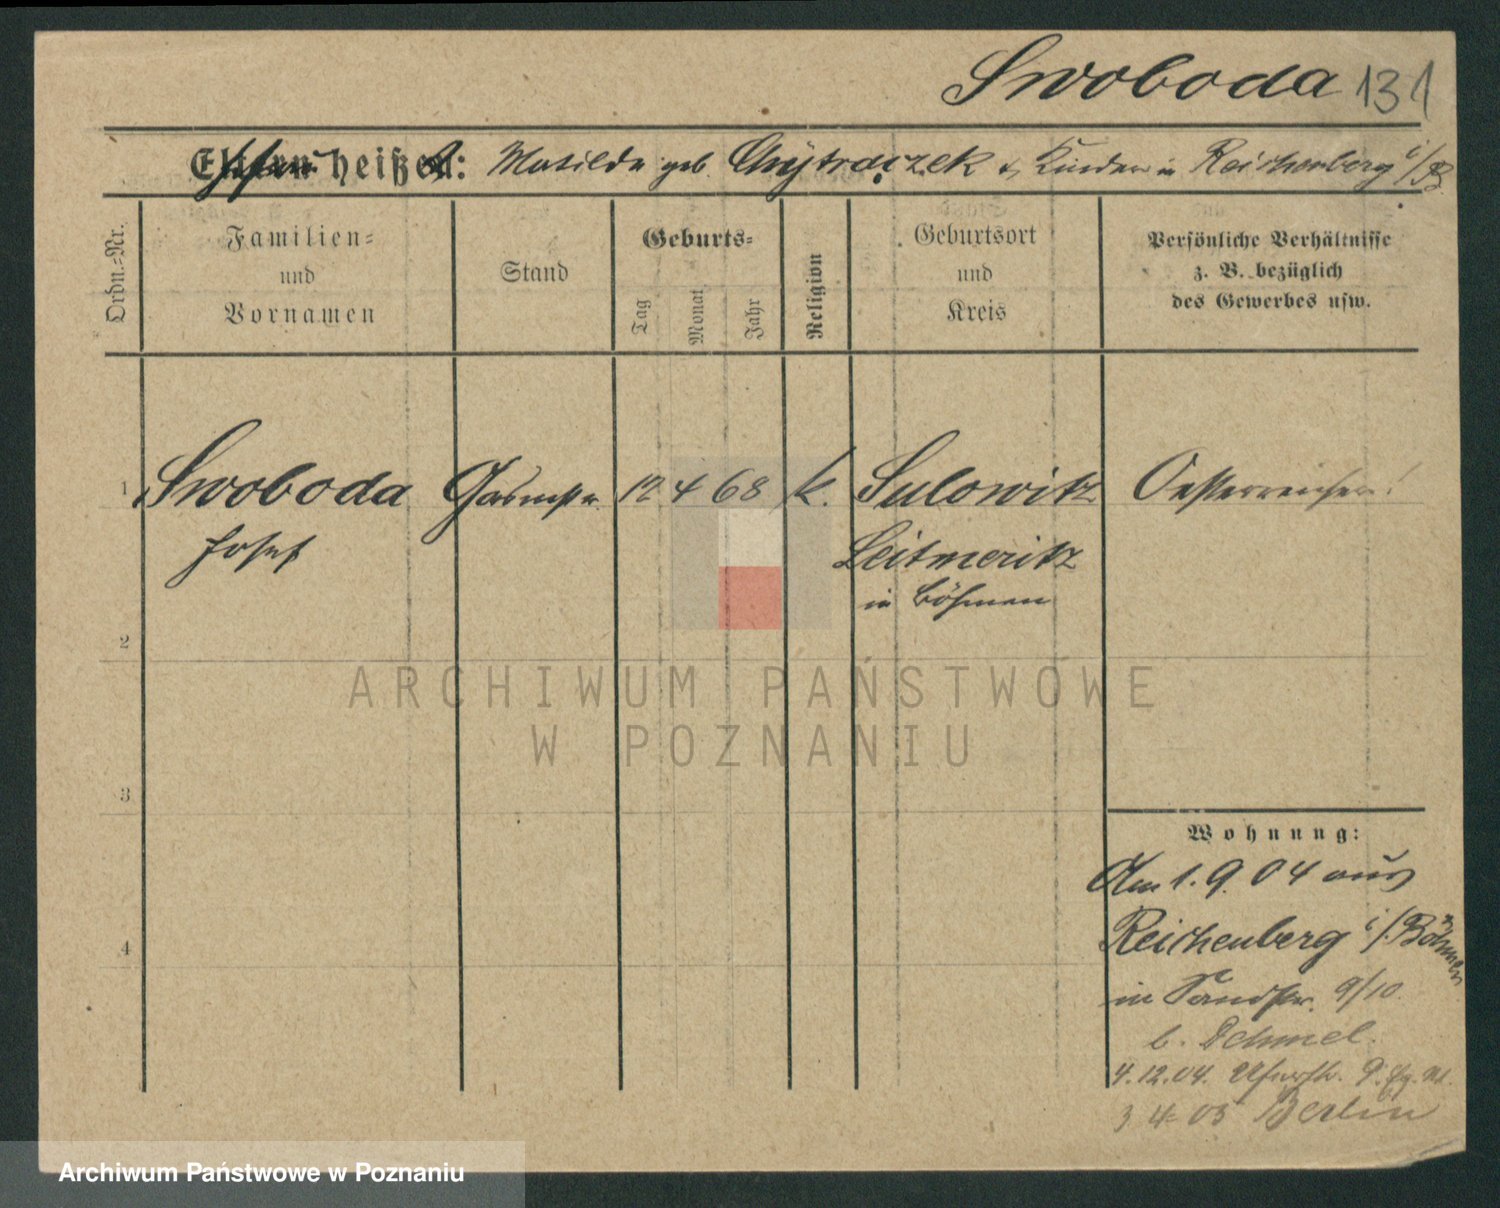 Swoboda 131
Eltern heißen: Matilde geb. Chytraczek & Kinder in Reichenberg i/B
Ordn.-Nr.
Familien-
und
Vornamen
Stand
Geburts-
Tag
Monat
Jahr
Religion
Geburtsort
und
Kreis
Persönliche Verhältnisse
z. B. bezüglich
des Gewerbes usw.
1 Swoboda 12 4 68 k. Sulowitz Oesterreicher!
Josef Leitmeritz
in Böhmen
2
ARCHIWUM PAŃSTWOWE
W POZNANIU
3
Wohnung:
Am 1.9.04 aus
4 Reichenberg i/Böhmen
in Sandstr. 9/10.
b. Dehmel.
4.12.04.
3 4 05 Berlin
Archiwum Państwowe w Poznaniu